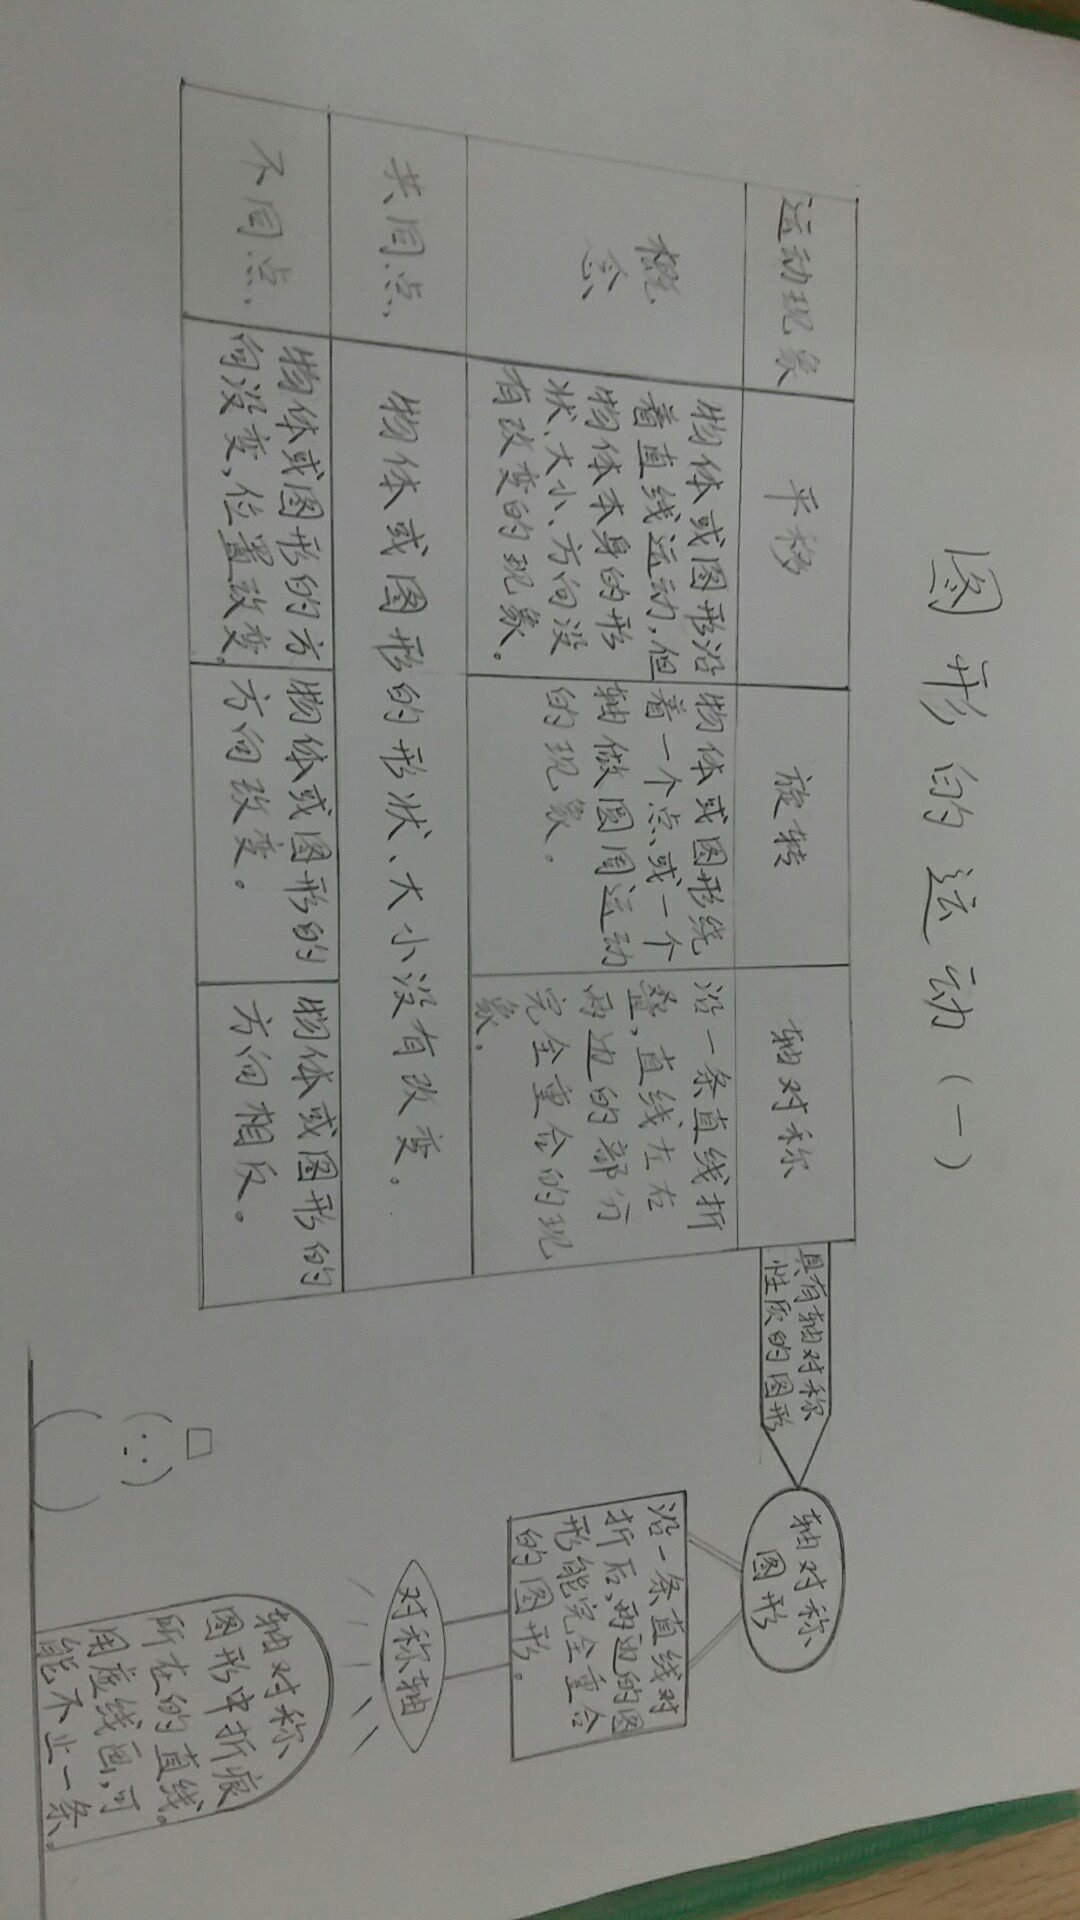 图形的运动（一）
运动现象
平移
旋转
轴对称
概
念
物体或图形沿
着直线运动,但
物体本身的形
状、大小、方向没
有改变的现象。
物体或图形绕
着一个点或一个
轴做圆周运动
的现象。
沿一条直线折
叠,直线左右
两边的部分
完全重合的现
象。
共同点、
物体或图形的形状、大小没有改变。
不同点、
物体或图形的方
向没变,位置改变。
物体或图形的
方向改变。
物体或图形的
方向相反。
具有轴对称
性质的图形
轴对称
图形
沿一条直线对
折后,两边的图
形能完全重合
的图形。
对称轴
轴对称
图形中折痕
所在的直线。
用虚线画,可
能不止一条。